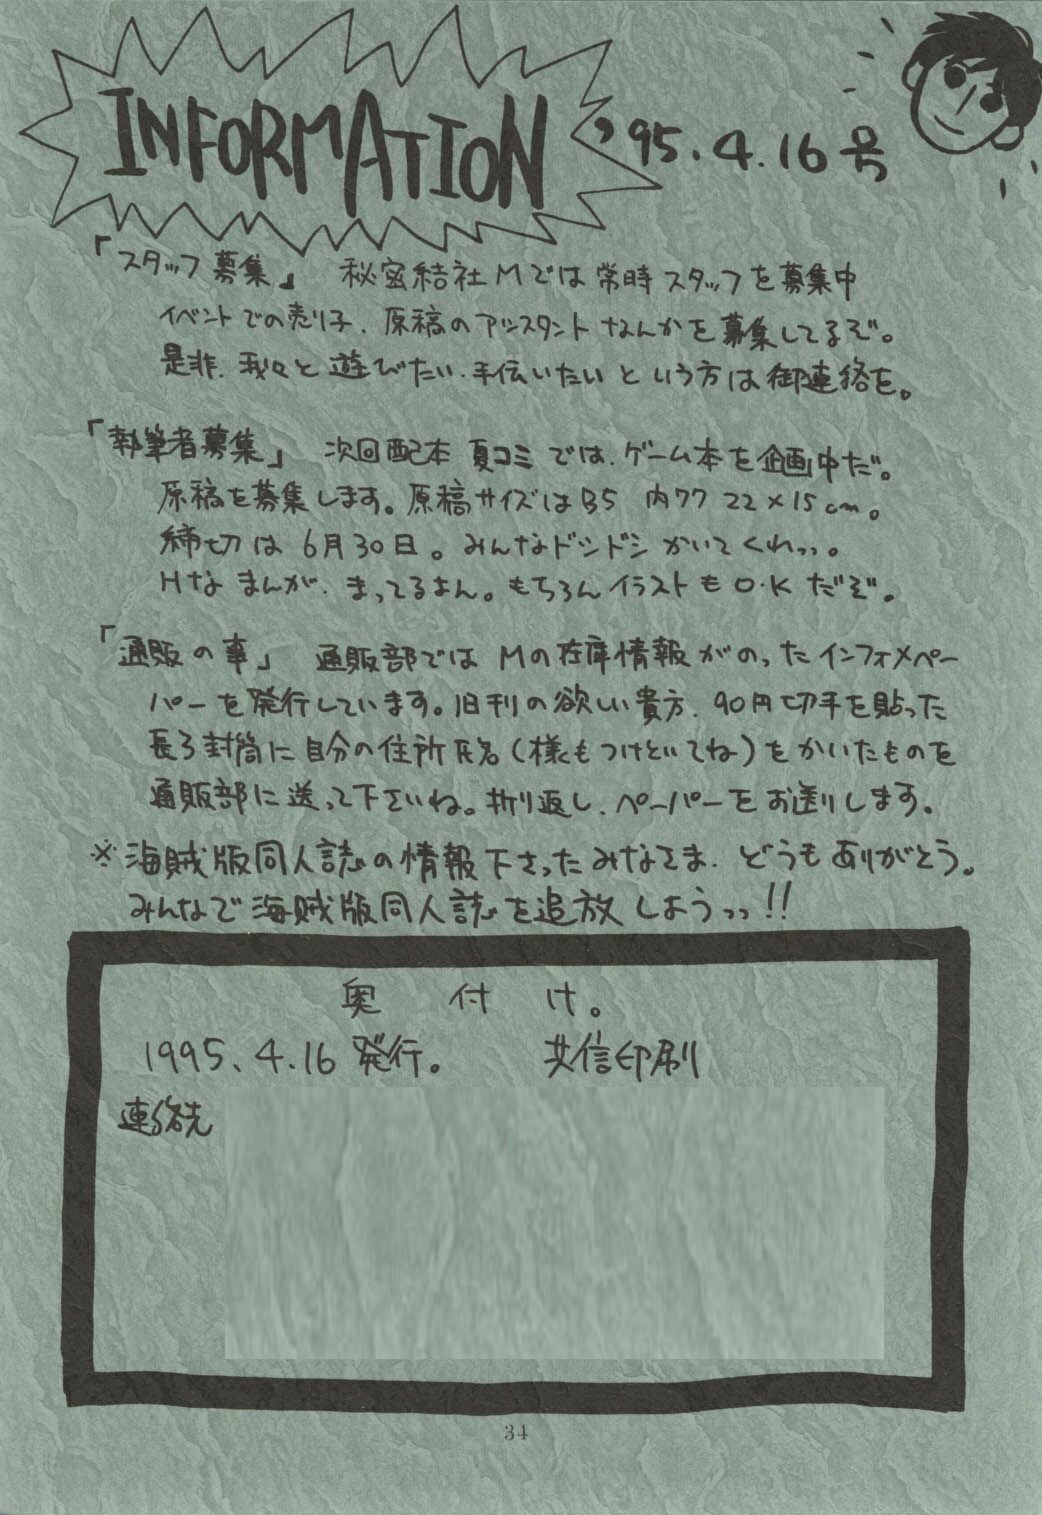 INFORMATION '95.4.16号
「スタッフ募集」 秘密結社Mでは常時スタッフを募集中
イベントでの売り子、原稿のアシスタントなんかを募集してるぞ。
是非、我々と遊びたい、手伝いたいという方は御連絡を。
「執筆者募集」 次回配本 夏コミでは、ゲーム本を企画中だ。
原稿を募集します。原稿サイズはB5 内ワク 22×15cm。
締切は6月30日。みんなドシドシかいてくれっっ。
Hなまんが、まってるよん。もちろんイラストもO・Kだぞ。
「通販の事」 通販部ではMの在庫情報がのったインフォメペー
パーを発行しています。旧刊の欲しい貴方、90円切手を貼った
長3封筒に自分の住所氏名(様もつけといてね)をかいたものを
通販部に送って下さいね。折り返し、ペーパーをお送りします。
※海賊版同人誌の情報下さったみなさま、どうもありがとう。
みんなで海賊版同人誌を追放しようっっ!!
奥付け。
1995.4.16 発行。 共信印刷
連絡先
34